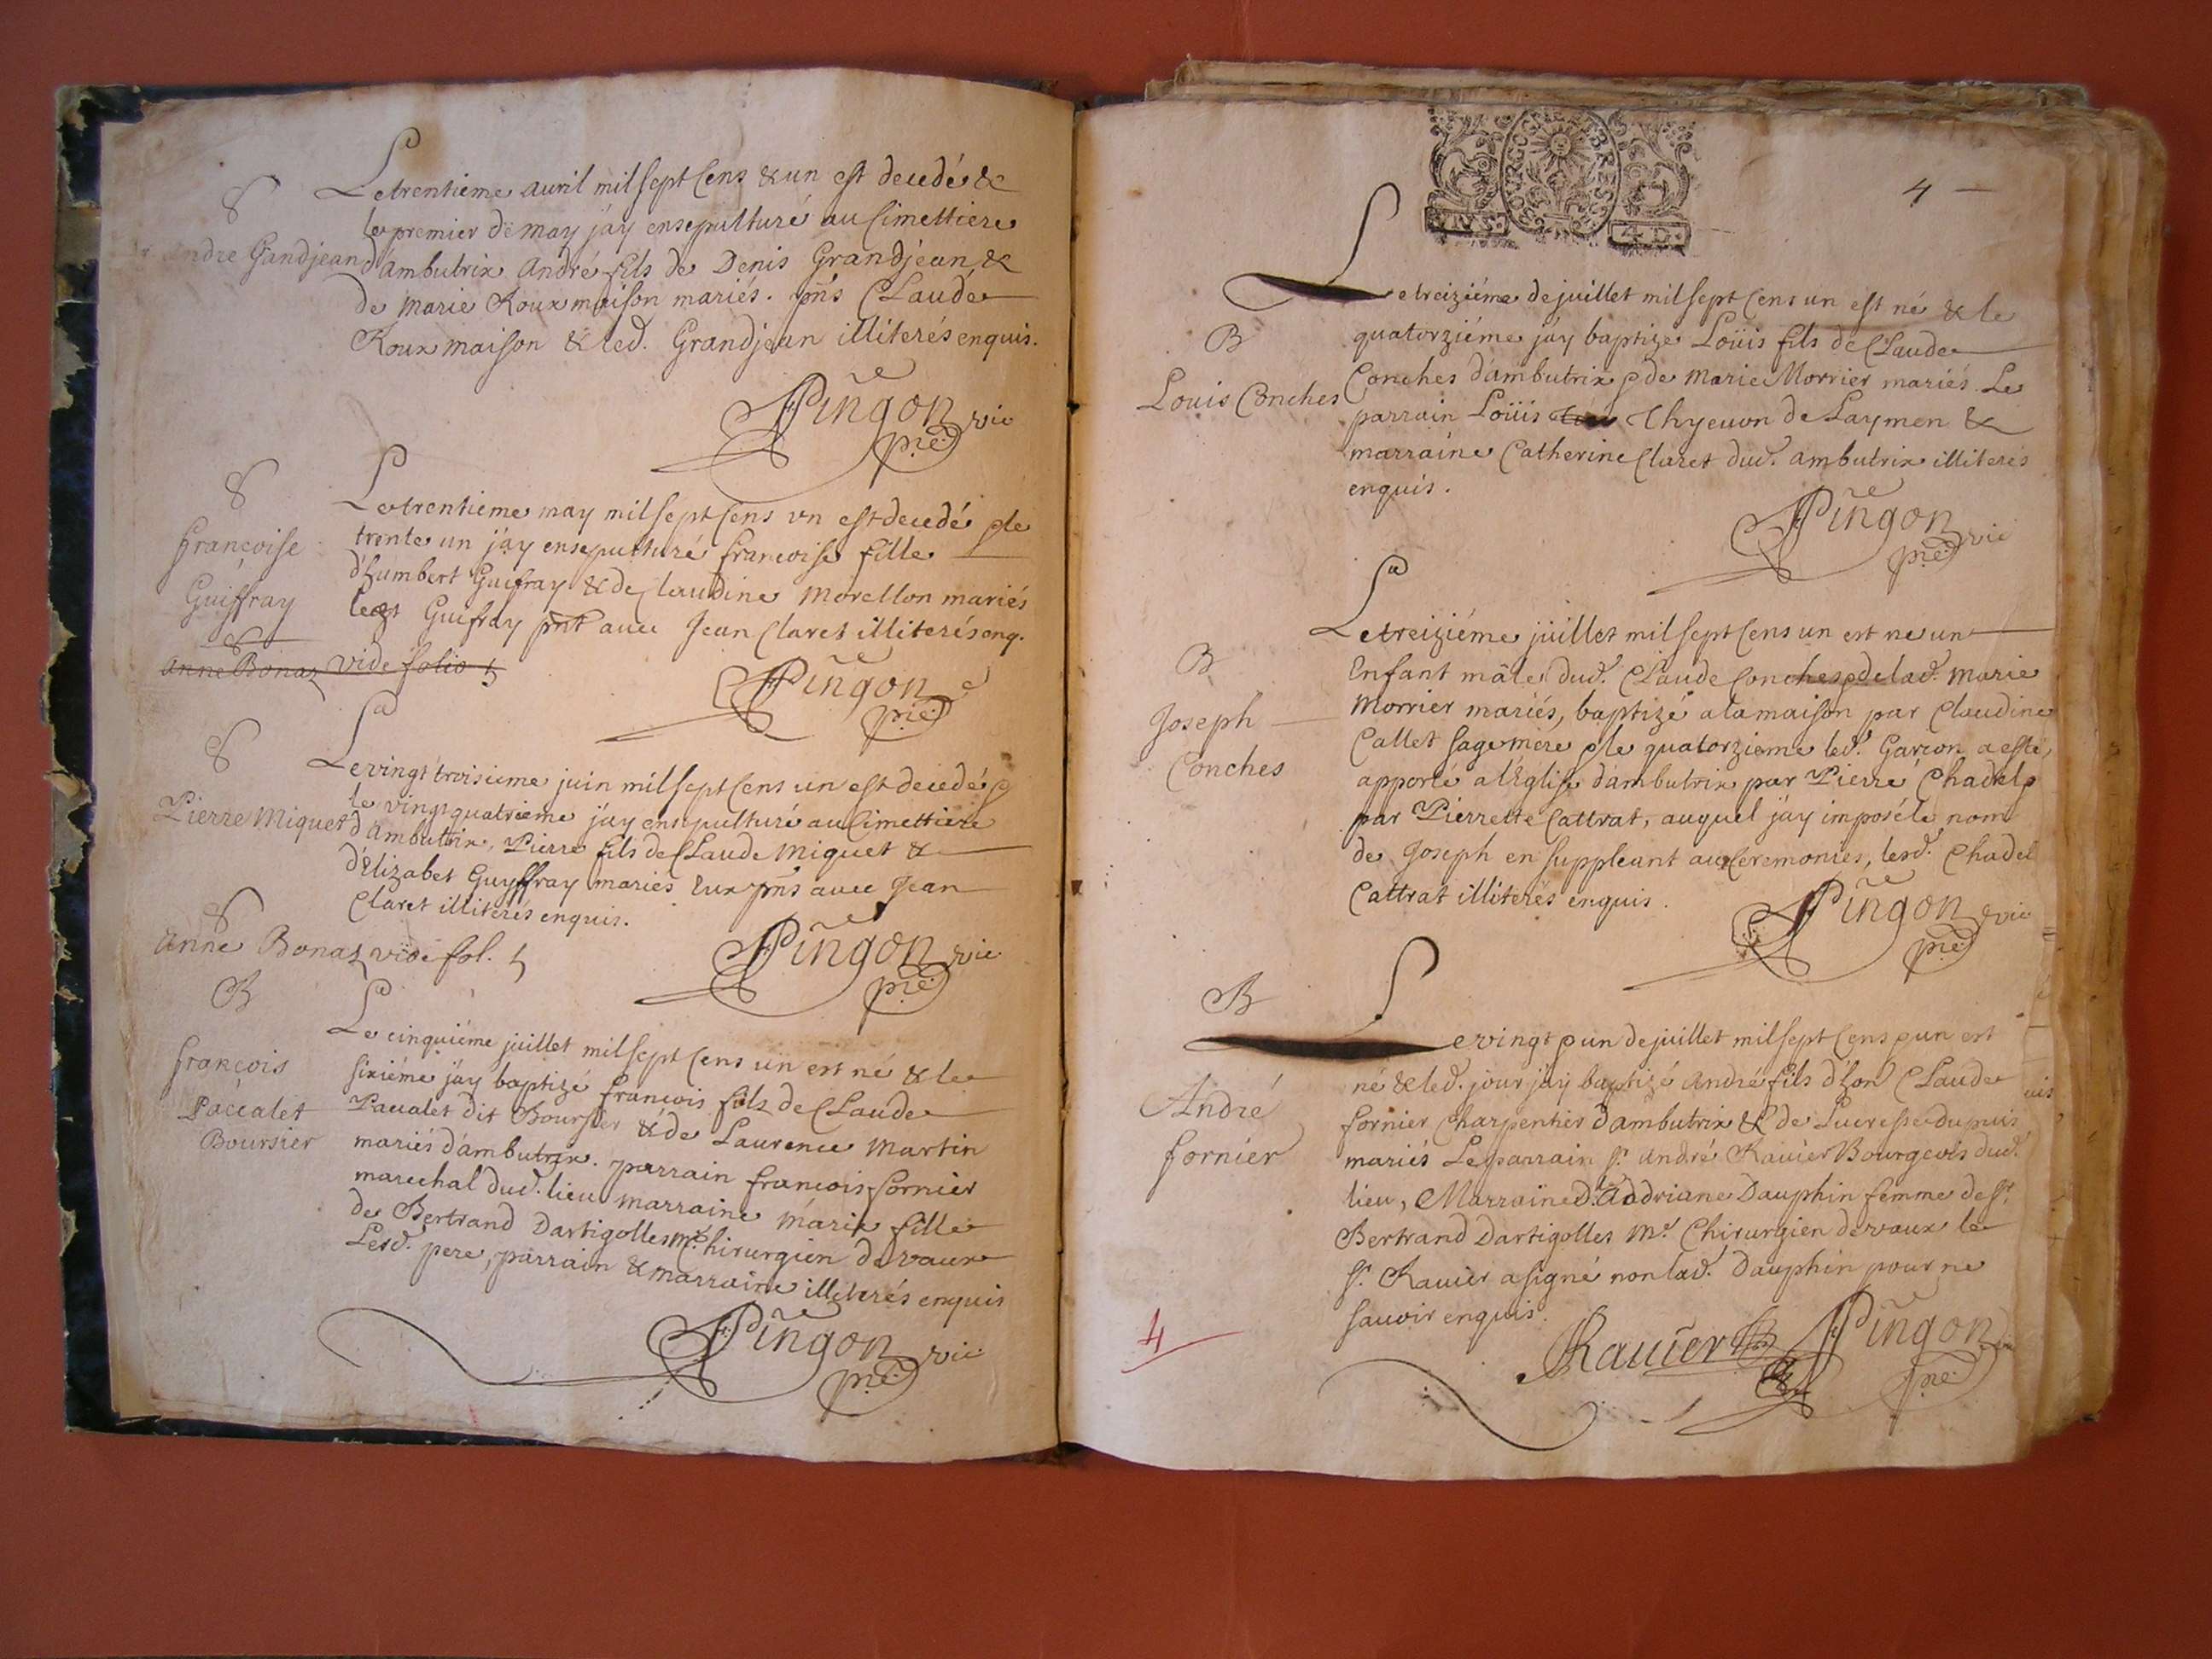 S
Le trentieme avril mil sept Cens & un est decedé &
le premier de may j'ay ensepulturé au Cimettiere
andre Gandjean
d'ambutrix André fils de Denis Grandjean &
de marie Roux maison mariés. pn̄s Claude
Roux maison & led. Grandjean illiterés enquis.
Pingon vic
pre
S
Le trentieme may mil sept Cens vn est decedé & le
françoise
trente un j'ay ensepulturé francoise fille
Guiffray
d'humbert Guifray & de Claudine Morellon mariés
led Guifray pn̄t avec Jean Claret illiterés enq.
S
anne Bonaz vide folio 5
Pingon
pre
S
Le vingt troisieme juin mil sept Cens un est decedé &
le vingt quatrieme j'ay ensepulturé au Cimettiere
Pierre Miguet
d'ambutrix, Pierre fils de Claude Miguet &
d'Elizabet Guyffray mariés Eux pn̄s avec Jean
Claret illiterés enquis.
S
anne Bonaz vide fol. 5
Pingon vic
pre
B
Le cinquiéme juillet mil sept Cens un est né & le
françois
sixiéme j'ay baptizé francois fils de Claude
Paccalet
Paccalet dit Boursier & de Laurence Martin
Boursier
mariés d'ambutrix. parrain francois fornier
marechal dud. lieu marraine marie fille
de Bertrand Dartigolles Mr. Chirurgien de vaux
Lesd. pere, parrain & marraine illiterés enquis
Pingon vic
pre
4
Le treiziéme de juillet mil sept Cens un est né & le
B
quatorziéme j'ay baptize Loüis fils de Claude
Louis Conches
Conches d'ambutrix & de Marie Morrier mariés Le
parrain Loüis Thyevon de Laymen &
marraine Catherine Claret dud. ambutrix illiterés
enquis.
Pingon vic
pre
Le treiziéme juillet mil sept Cens un est ne un
B
Enfant mâle dud. Claude Conches & de lad. Marie
Joseph
Morrier mariés, baptizé a la maison par Claudine
Conches
Callet sage mere & le quatorzieme led. Garcon a esté
apporté a l'Eglise d'ambutrix par Pierre Chadel &
par Pierrette Cattrat, auquel j'ay imposé le nom
de Joseph en suppleant aux Ceremonies, lesd. Chadel
Cattrat illiterés enquis.
Pingon vic
pre
B
Le vingt & un de juillet mil sept Cens & un est
né & led. jour j'ay baptizé André fils d'hon Claude
André
fornier Charpentier d'ambutrix & de Lucresse dupuis
fornier
mariés Le parrain Sr. André Ravier Bourgeois dud.
lieu, Marraine D. Addriane Dauphin femme de Sr.
Bertrand Dartigolles Mr. Chirurgien de vaux le
Sr. Ravier a signé non lad. Dauphin pour ne
savoir enquis.
4
Ravier Pingon
pre